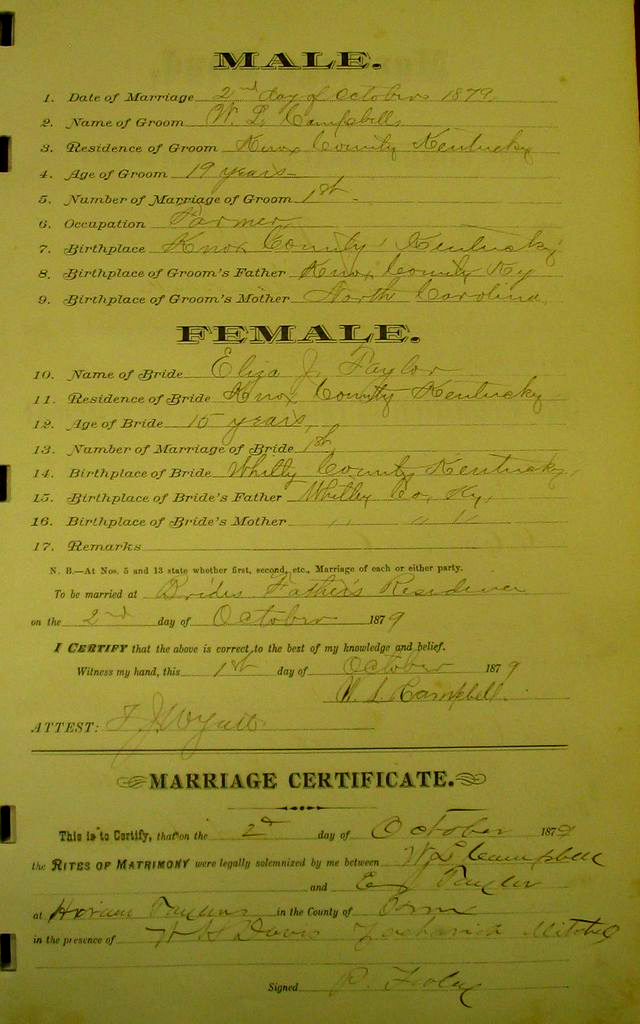 MALE.
1. Date of Marriage 2nd day of October 1879
2. Name of Groom W. L. Campbell
3. Residence of Groom Knox County Kentucky
4. Age of Groom 19 years
5. Number of Marriage of Groom 1st
6. Occupation Farmer
7. Birthplace Knox County Kentucky
8. Birthplace of Groom's Father Knox County Ky
9. Birthplace of Groom's Mother North Carolina
FEMALE.
10. Name of Bride Eliza J. Taylor
11. Residence of Bride Knox County Kentucky
12. Age of Bride 15 years,
13. Number of Marriage of Bride 1st
14. Birthplace of Bride Whitly County Kentucky,
15. Birthplace of Bride's Father Whitley Co, Ky,
16. Birthplace of Bride's Mother " " "
17. Remarks
N. B.—At Nos. 5 and 13 state whether first, second, etc., Marriage of each or either party.
To be married at Brides Father's Residence
on the 2nd day of October 1879
I CERTIFY that the above is correct to the best of my knowledge and belief.
Witness my hand, this 1st day of October 1879
W. L. Campbell.
ATTEST: Wyatt
MARRIAGE CERTIFICATE.
This is to Certify, that on the 2d day of October 1879
the RITES OF MATRIMONY were legally solemnized by me between W L Campbell
and E J Taylor
at Taylors in the County of
in the presence of Davis Mitchel
Signed